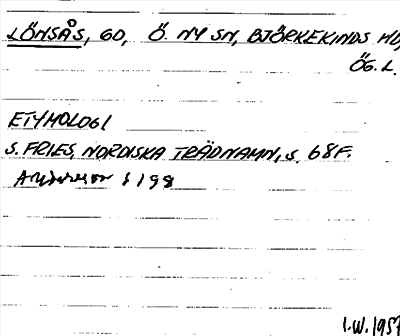 LÖNSÅS, GD, Ö. NY SN, BJÖRKEKINDS HD,
ÖG. L.
ETYMOLOGI
S. FRIES, NORDISKA TRÄDNAMN, S. 68F.
Andersson s 198
I.W. 1957